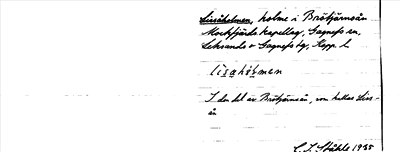 Lissåholmen, holme i Brötjärnsån
Mockfjärds kapellag, Gagnefs sn,
Leksands o Gagnefs tg, Kopp. l.
lisaholmen
I den del av Brötjärnsån, som kallas Liss-
ån
C. I. Ståhle 1935